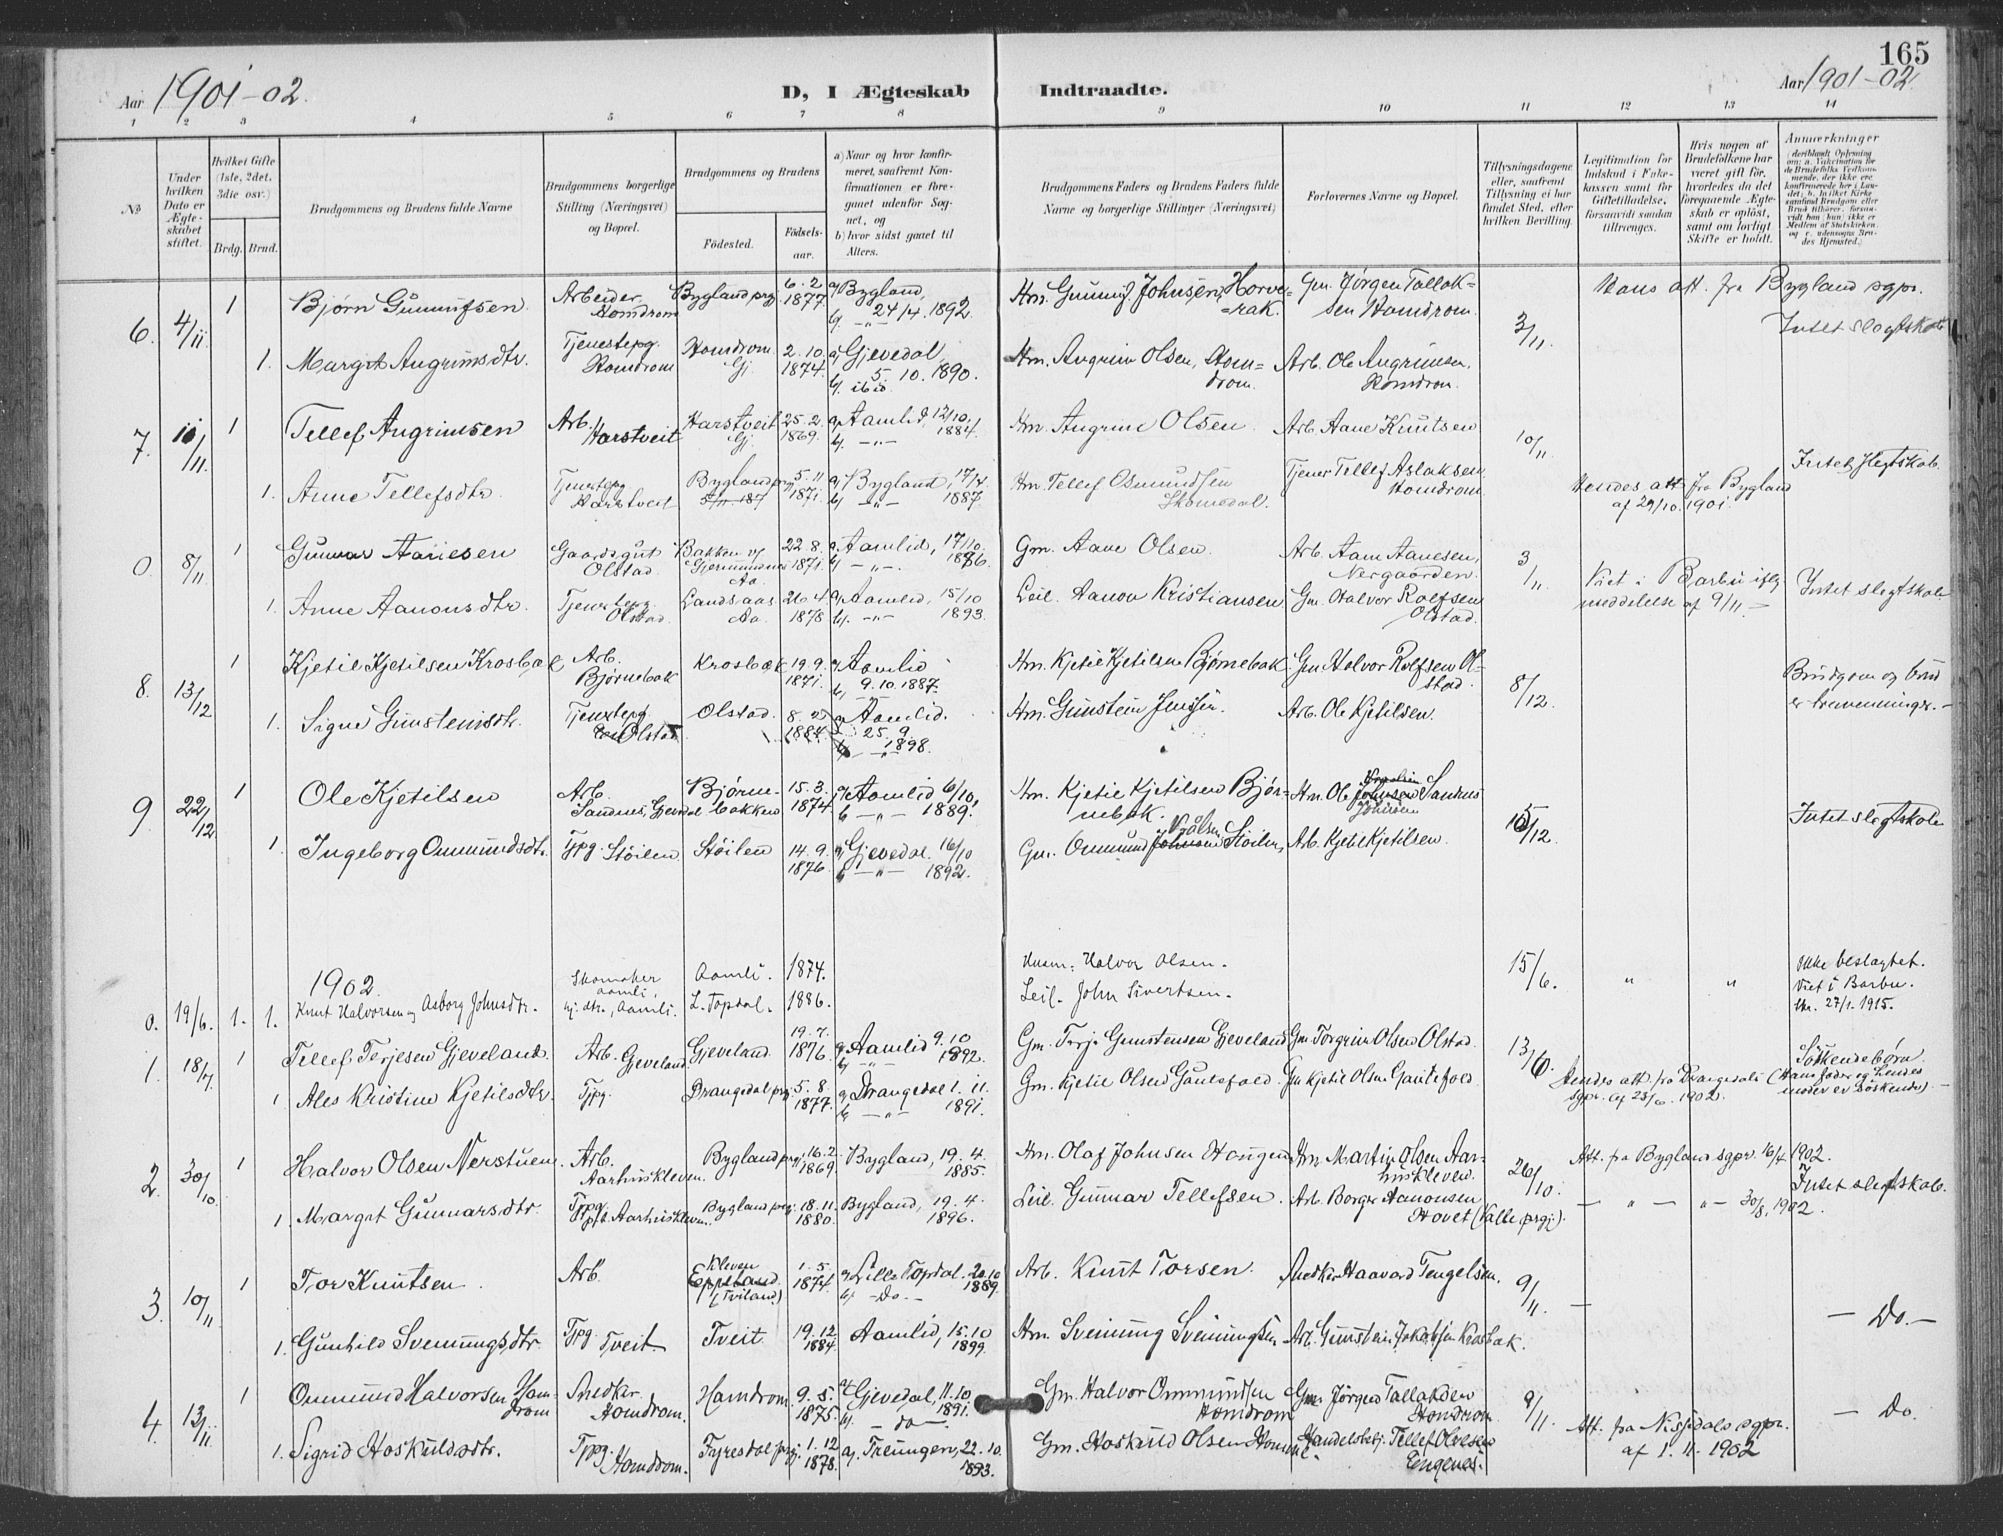 165
Aar 1901-02.
D, I Ægteskab Indtraadte.
Aar 1901-02.
1 2 3 4 5 6 7 8 9 10 11 12 13 14
No
Under hvilken Dato er Ægteskabet stiftet.
Hvilket Gifte (1ste, 2det, 3die osv.)
Brdg. Brud.
Brudgommens og Brudens fulde Navne
Brudgommens borgerlige Stilling (Næringsvei) og Bopæl.
Brudgommens og Brudens
Fødested.
Fødselsaar.
a) Naar og hvor konfirmeret, saafremt Konfirmationen er foregaaet udenfor Sognet, og
b) hvor sidst gaaet til Alters.
Brudgommens Faders og Brudens Faders fulde Navne og borgerlige Stillinger (Næringsvei)
Forlovernes Navne og Bopæl.
Tillysningsdagene eller, saafremt Tillysning ei har fundet Sted, efter hvilken Bevilling.
Legitimation for Indskud i Enkekassen samt for Giftetilladelse, forsaavidt saadan tiltrænges.
Hvis nogen af Brudefolkene har været gift før, hvorledes da det foregaaende Ægteskab er opløst, samt om lovligt Skifte er holdt.
Anmærkninger
6. 4/11 1 Bjørn Gunnufsen Arbeider Homdrom Bygland prgj. 6.2 1877 a) Bygland, 24/4. 1892 b) -"- Hm. Gunnuf Johnsen, Horverak. Gm. Jørgen Tallaksen Homdrom. 3/11. Hans att. fra Bygland sgpr.
Intet slegtskab
1. Margit Angrimsdtr. Tjenestepg. Homdrom Homdrom Gj. 2.10. 1874. a) Gjevedal, 5.10.1890. b) ibid. Hm. Angrim Olsen, Homdrom. Arb. Ole Angrimsen, Homdrom.
7. 10/11 1 Tellef Angrimsen Arb. Harstveit Harstveit Gj. 25.2 1869. a) Aamlid, 12/10 1884. b) -"- Hm. Angrim Olsen. Arb. Aane Knutsen 10/11
Intet slegtskab.
1. Anne Tellefsdtr. Tjenestepg Harstveit Bygland prgj. 5.11 1871. a) Bygland, 17/4. 1887 b) -"- Hm. Tellef Osmundsen Skomedal. Tjener Tellef Aslaksen Homdrom. Hendes att. fra Bygland af 29/10. 1901.
0. 8/11 1 Gunnar Aanesen Gaardsgut Olstad. Bakken v/ Gjermundnes Aa. 22.8. 1871. a) Aamlid, 17/10. 1886. b) -"-. Gm. Aane Olsen. Arb. Aanen Aanesen, Nergaarden. 3/11. Viet i Barbu iflg. meddelelse af 9/11 - Intet slegtskab
1. Anne Aanonsdtr. Tjenestepg. Olstad. Landsaas Aa. 26.4 1878 a) Aamlid, 15/10 1893. b) -"- Leil. Aanon Kristiansen Gm. Halvor Rolfsen Olstad.
8. 13/12 1 Kjetil Kjetilsen Krosbæk Arb. Bjørnebak Krosbæk 19.9. 1871. a) Aamlid 9.10.1887. b) Hm. Kjetil Kjetilsen Bjørnebak Gm Halvor Rolfsen Olstad. 8/12. Brudgom og brud er tremenninge. -
1. Signe Gunsteinsdtr. Tjenstepg Olstad Olstad. 8.2 1884 a) Aamlid. 25.9. 1898. b) -"- Hm. Gunstein Jensen. Arb. Ole Kjetilsen.
9 22/12 1 Ole Kjetilsen Arb. Sandnes, Gjevedal Bjørnebakken 15.3. 1874. a) Aamlid 6/10, 1889. b) -"- Hm. Kjetil Kjetilsen Bjørnebak. Hm. Ole Johnsen Sandnes 15/12. Intet slegtskab
1. Ingeborg Ommundsdtr. Tjpg. Støilen Støilen 14.9. 1876. a) Gjevedal. 16/10 b) -"- 1892. Gm. Ommund Johnsen Støilen, Arb. Kjetil Kjetilsen.
1902.
0. 19/6. 1. 1. Knut Halvorsen og Asborg Johnsdtr. Skomaker Aamli. Aamli. 1874. Husm. Halvor Olsen. 15/6. " " Ikke beslægtet. Viet i Barbu.
gj. dtr., Aamli. L. Topdal. 1886. Leil. John Sivertsen. 27/1. 1915.
1. 18/7. 1 Tellef Terjesen Gjeveland. Arb. Gjeveland Gjeveland 19.7. 1876. a) Aamlid 9.10 1892. b) -"- Gm. Terje Gunstensen Gjeveland Gm Torgrim Olsen Olstad. 13/6. Søskendebørn (Hans fader og hendes moder er søskende) -
1 Ales Kristine Kjetilsdtr. Tjpg. Drangedal prgj. 5.8. 1877. a) Drangedal 1.11. b) -"- 1891. Gm. Kjetil Olsen Gautefald. Gm Kjetil Olsen Gautefald. Hendes att. fra Drangedals sgpr. af 23/6. 1902.
2. 30/10. 1 Halvor Olsen Nerstuen. Arb. Aarhuskleven. Bygland prgj. 16.2 1869. Bygland, 19.4. 1885. Hm. Olaf Johnsen Haugen Hm Martin Olsen Aarhuskleven. 26/10. Att. fra Bygland sgpr. 16/4 1902.
Intet slegtskab.
1 Margit Gunnarsdtr. Tjpg. Aarhuskleven. Bygland prgj. 18.11. 1880. Bygland, 19.4. 1896. Leil. Gunnar Tellefsen. Arb. Borger Aanonsen Hovet (Valle prgj). - " - " - 30/8. 1902.
3. 10/11 1 Tor Knutsen. Arb. Kleven Eppeland (Tviland) 1.5. 1874. a) Lille Topdal. 20.10 1889. b) Do. - Arb. Knut Torsen. Snedker Haavard Tengelsen. 9/11. -
- Do. -
1. Gunhild Sveinungsdtr. Tjpg. Tveit. Tveit. 19.12 1884. Aamlid, 15.10 1899. Hm. Sveinung Sveinungsen Arb. Gunstein Jakobsen Krosbak.
4. 13/11 1 Ommund Halvorsen Homdrom Snedker Homdrom. Homdrom 9.5. 1875. a) Gjevedal, 11.10. 1891. b) - do -. Gm. Halvor Ommundsen Homdrom Gm. Jørgen Tallaksen Homdrom 9/11. Att. fra Nissedals sgpr. af 1.11. 1902 - Do.
1. Sigrid Hoskuldsdtr. Tjpg. Homdrom. Fyresdal prgj. 1.12 1878. a) Treungen, 22.10. 1893. Gm. Hoskuld Olsen Handelsbetj. Tellef Olsen Engenes.